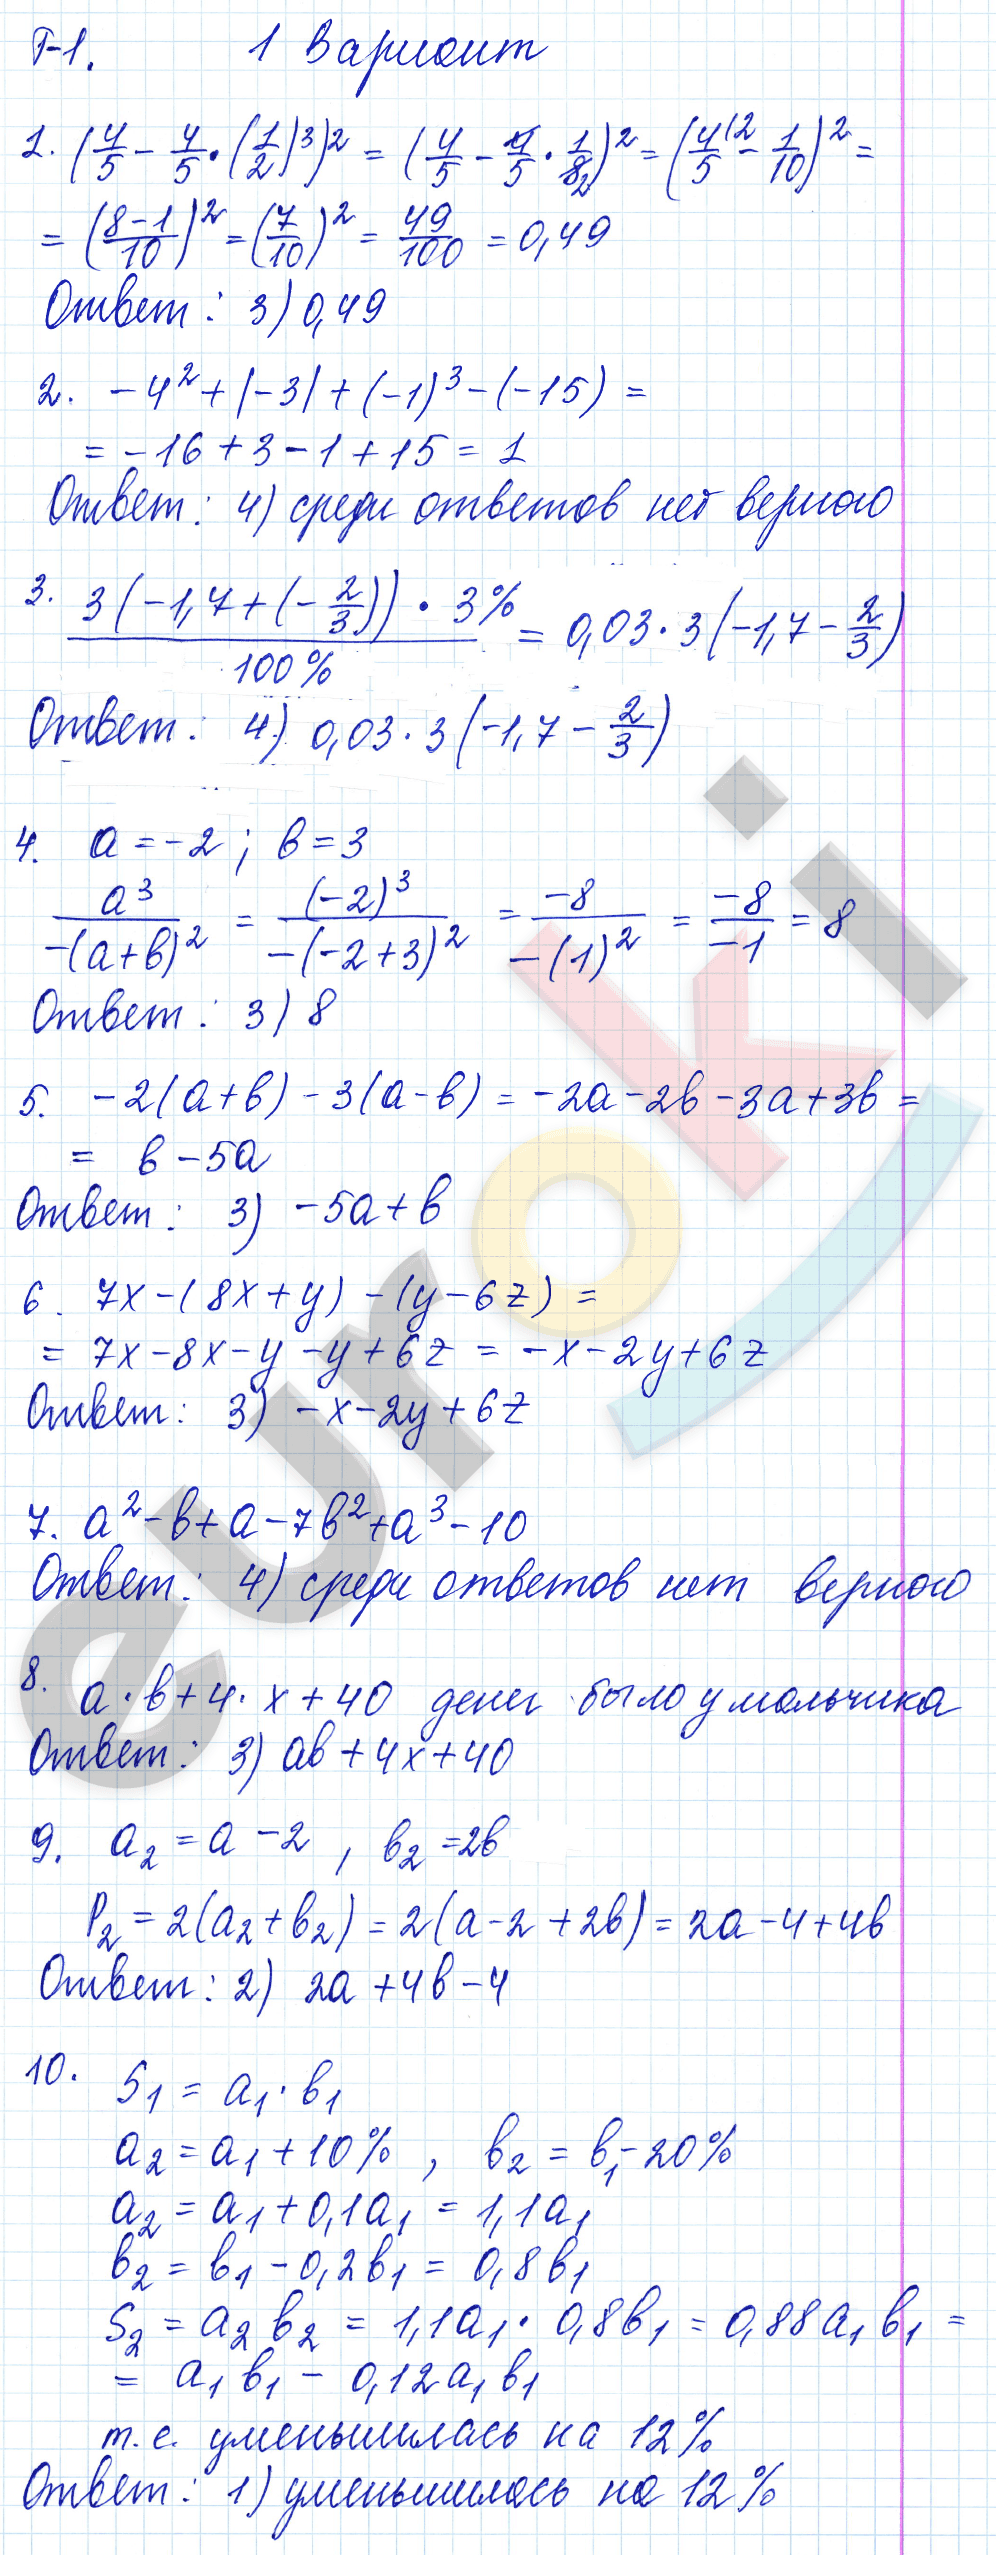 Т-1. 1 Вариант
1. (4/5 - 4/5 · (1/2)³)² = (4/5 - 4/5 · 1/8₂)² = (4/5^(2 - 1/10)² =
= (8-1/10)² = (7/10)² = 49/100 = 0,49
Ответ: 3) 0,49
2. -4² + |-3| + (-1)³ - (-15) =
= -16 + 3 - 1 + 15 = 1
Ответ: 4) среди ответов нет верного
3. 3(-1,7 + (-2/3)) · 3% / 100% = 0,03 · 3(-1,7 - 2/3)
Ответ: 4) 0,03 · 3(-1,7 - 2/3)
4. a = -2 ; в = 3
a³/-(a+в)² = (-2)³/-(-2+3)² = -8/-(1)² = -8/-1 = 8
Ответ: 3) 8
5. -2(a+в) - 3(a-в) = -2a - 2в - 3a + 3в =
= в - 5a
Ответ: 3) -5a + в
6. 7x - (8x + y) - (y - 6z) =
= 7x - 8x - y - y + 6z = -x - 2y + 6z
Ответ: 3) -x - 2y + 6z
7. a² - в + a - 7в² + a³ - 10
Ответ: 4) среди ответов нет верного
8. a · в + 4 · x + 40 денег было у мальчика
Ответ: 3) aв + 4x + 40
9. a₂ = a - 2 , в₂ = 2в
P₂ = 2(a₂ + в₂) = 2(a - 2 + 2в) = 2a - 4 + 4в
Ответ: 2) 2a + 4в - 4
10. S₁ = a₁ · в₁
a₂ = a₁ + 10% , в₂ = в₁ - 20%
a₂ = a₁ + 0,1a₁ = 1,1a₁
в₂ = в₁ - 0,2в₁ = 0,8в₁
S₂ = a₂ в₂ = 1,1a₁ · 0,8в₁ = 0,88a₁ в₁ =
= a₁ в₁ - 0,12a₁ в₁
т.е. уменьшилась на 12%
Ответ: 1) уменьшилась на 12%
euroki